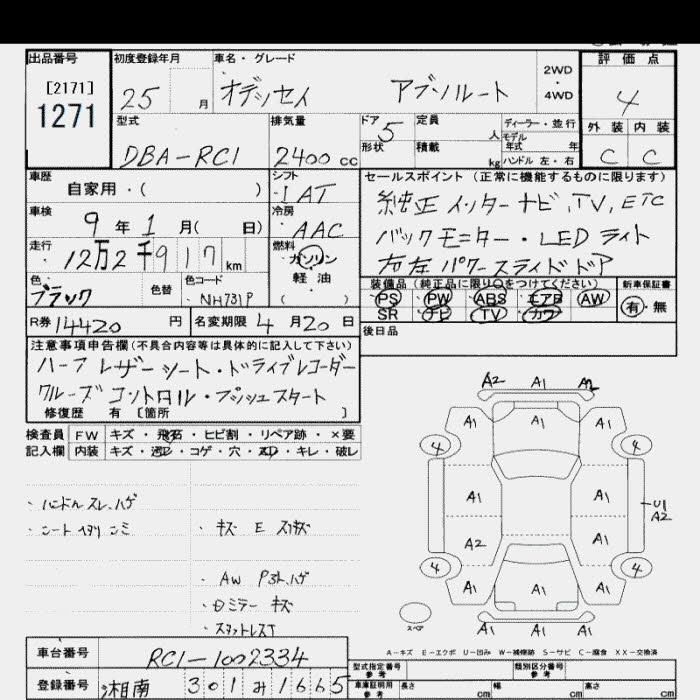 出品番号 初度登録年月 車名・グレード 評価点
[2171]
1271
25 月 オデッセイ アブソルート 2WD ・ 4WD 4
型式 排気量 ドア 5 定員 人 ディーラー・並行
外装 内装
形状 積載 kg モデル年式 年
ハンドル 左・右
DBA-RC1 2400 cc C C
車歴 シフト セールスポイント (正常に機能するものに限ります)
自家用・( ) IAT
純正 インターナビ, TV, ETC
車検 9 年 1 月( 日) 冷房 AAC
バックモニター・LEDライト
走行 12万2千917 km 燃料 ガソリン
軽油
( )
左右パワースライドドア
色 ブラック 色替 色コード NH731P
装備品 (純正品に限り○をつけてください) 新車保証書
PS PW ABS エアB AW 有・無
SR ナビ TV カワ
R券 14420 円 名変期限 4 月 20 日
後日品
注意事項申告欄 (不具合内容等は具体的に記入して下さい)
ハーフレザーシート・ドライブレコーダー
クルーズコントロール・プッシュスタート
修復歴 有 [箇所 ]
検査員 FW キズ・飛石・ヒビ割・リペア跡・×要
記入欄 内装 キズ・・コゲ・穴・・キレ・破レ
A2 A1 A2
A1 A1 A1
4 4
A1 A1 U1
A2
A2 A1
4 4
A1 A1 A1
A1 A1 A1
・ハンドル スレ、ハゲ
・シート ヘタリ シミ ・キズ E スリキズ
・AW ハゲ
・ミラー キズ
スペア
A-キズ E-エクボ U-凹み W-補修跡 S-サビ C-腐食 XX-交換済
車台番号 RC1-1002334
型式指定番号 参考 類別区分番号 参考
登録番号 湘南 301 み 1665
車庫証明用 参考 長さ cm 幅 cm 高さ cm